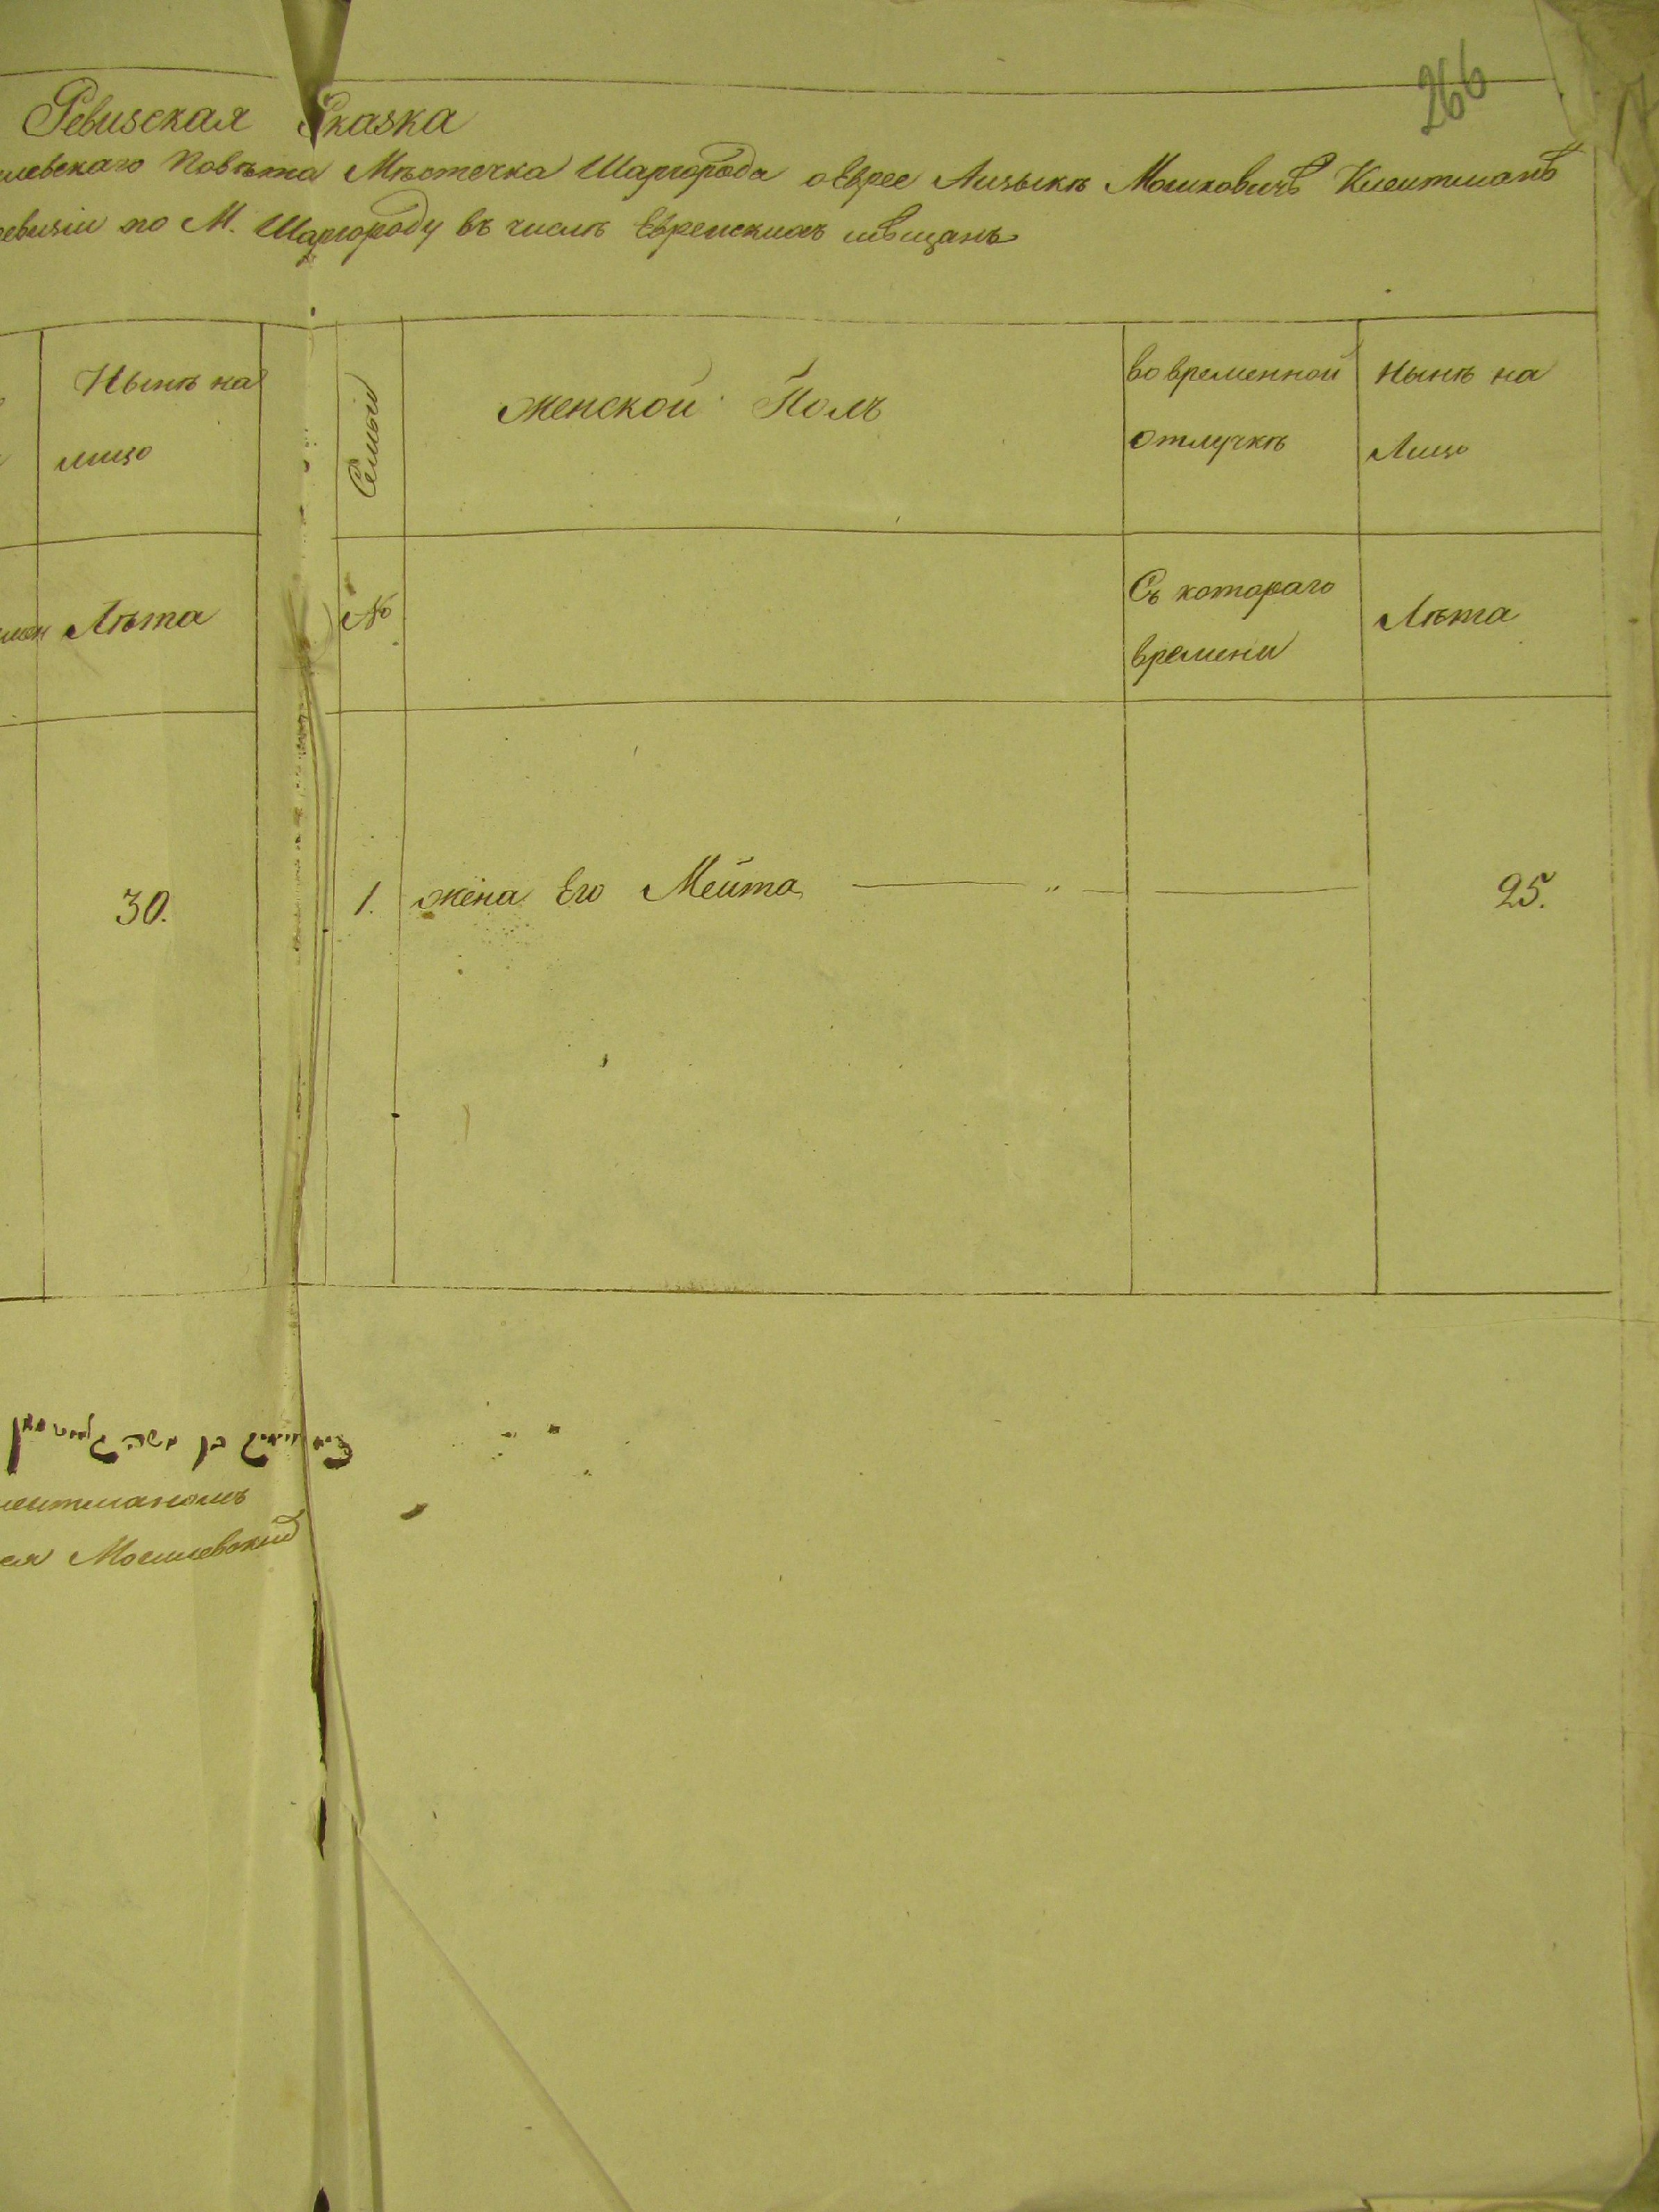 266
Ревизская Сказка
Повѣта Мѣстечка Шаргорода о Еврее Аизыкѣ Мошковичѣ Клейтманѣ
по М. Шаргороду въ числѣ Еврейскихъ мѣщанъ
Нынѣ на
лицо
Семьи
женской Полъ
во временной
отлучкѣ
Нынѣ на
Лицо
Лѣта
№
Съ котораго
времени
Лѣта
30.
1. жена Его Мейта — " —
25.
Могилевский